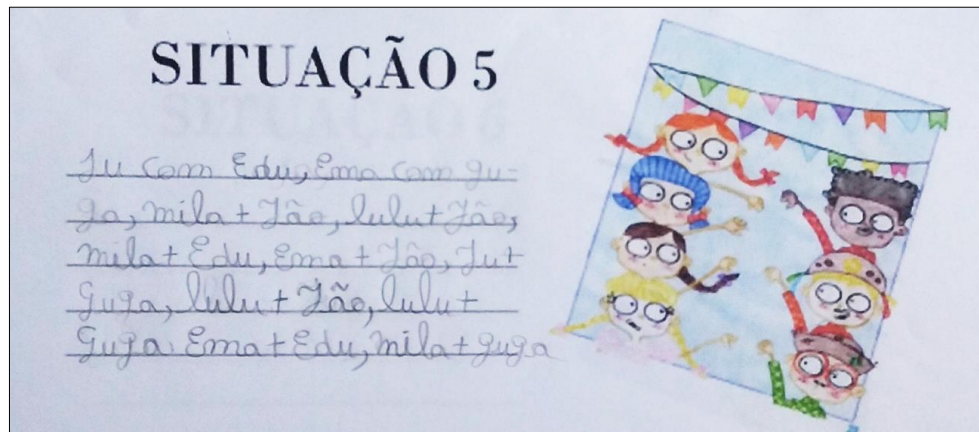 SITUAÇÃO 5
Ju com Edu, Ema com gu-
ga, mila + Jão, lulu + Jão,
mila + Edu, Ema + Jão, Ju +
Guga, lulu + Jão, lulu +
Guga. Ema + Edu, mila + guga